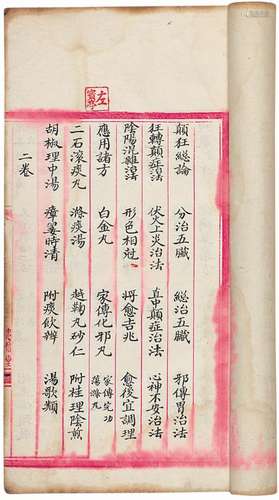 左
癲狂總論 分治五臟 總治五臟 邪傳胃治法
狂轉癲症治法 伏火上炎治法 真中癲症治法 心神不安治法
陰陽混雜治法 形色相尅 將愈吉兆 愈後宜調理
應用諸方 白金丸 家傳化邪丸 家傳完功蕩滌丸
二石滾痰丸 滌痰湯 越鞠丸砂仁 附桂理陰煎
胡椒理中湯 時清 附痰飲辨 湯歌類
二卷